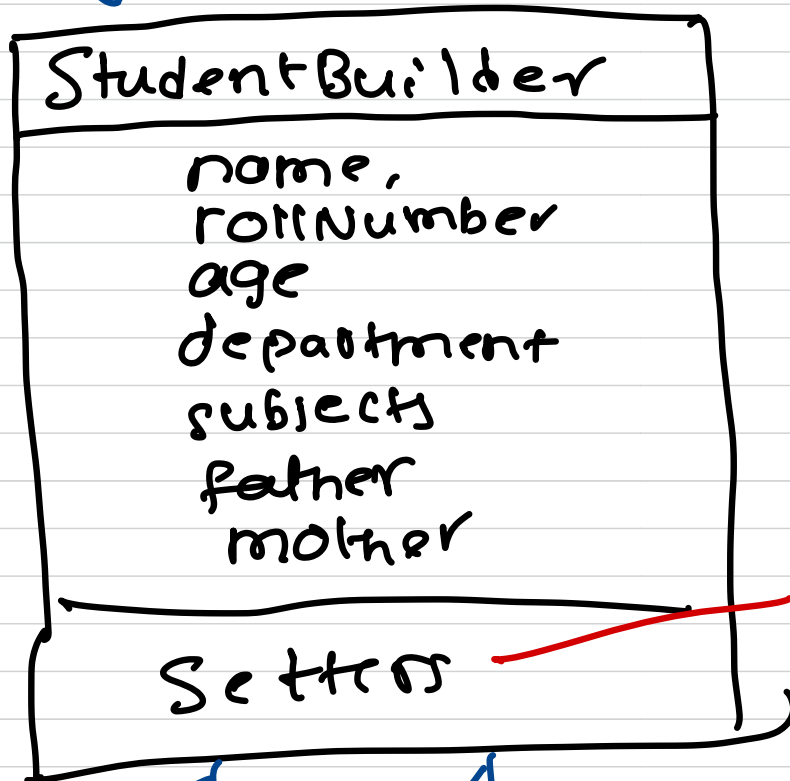 StudentBuilder
name,
rollNumber
age
department
subjects
father
mother
Setters